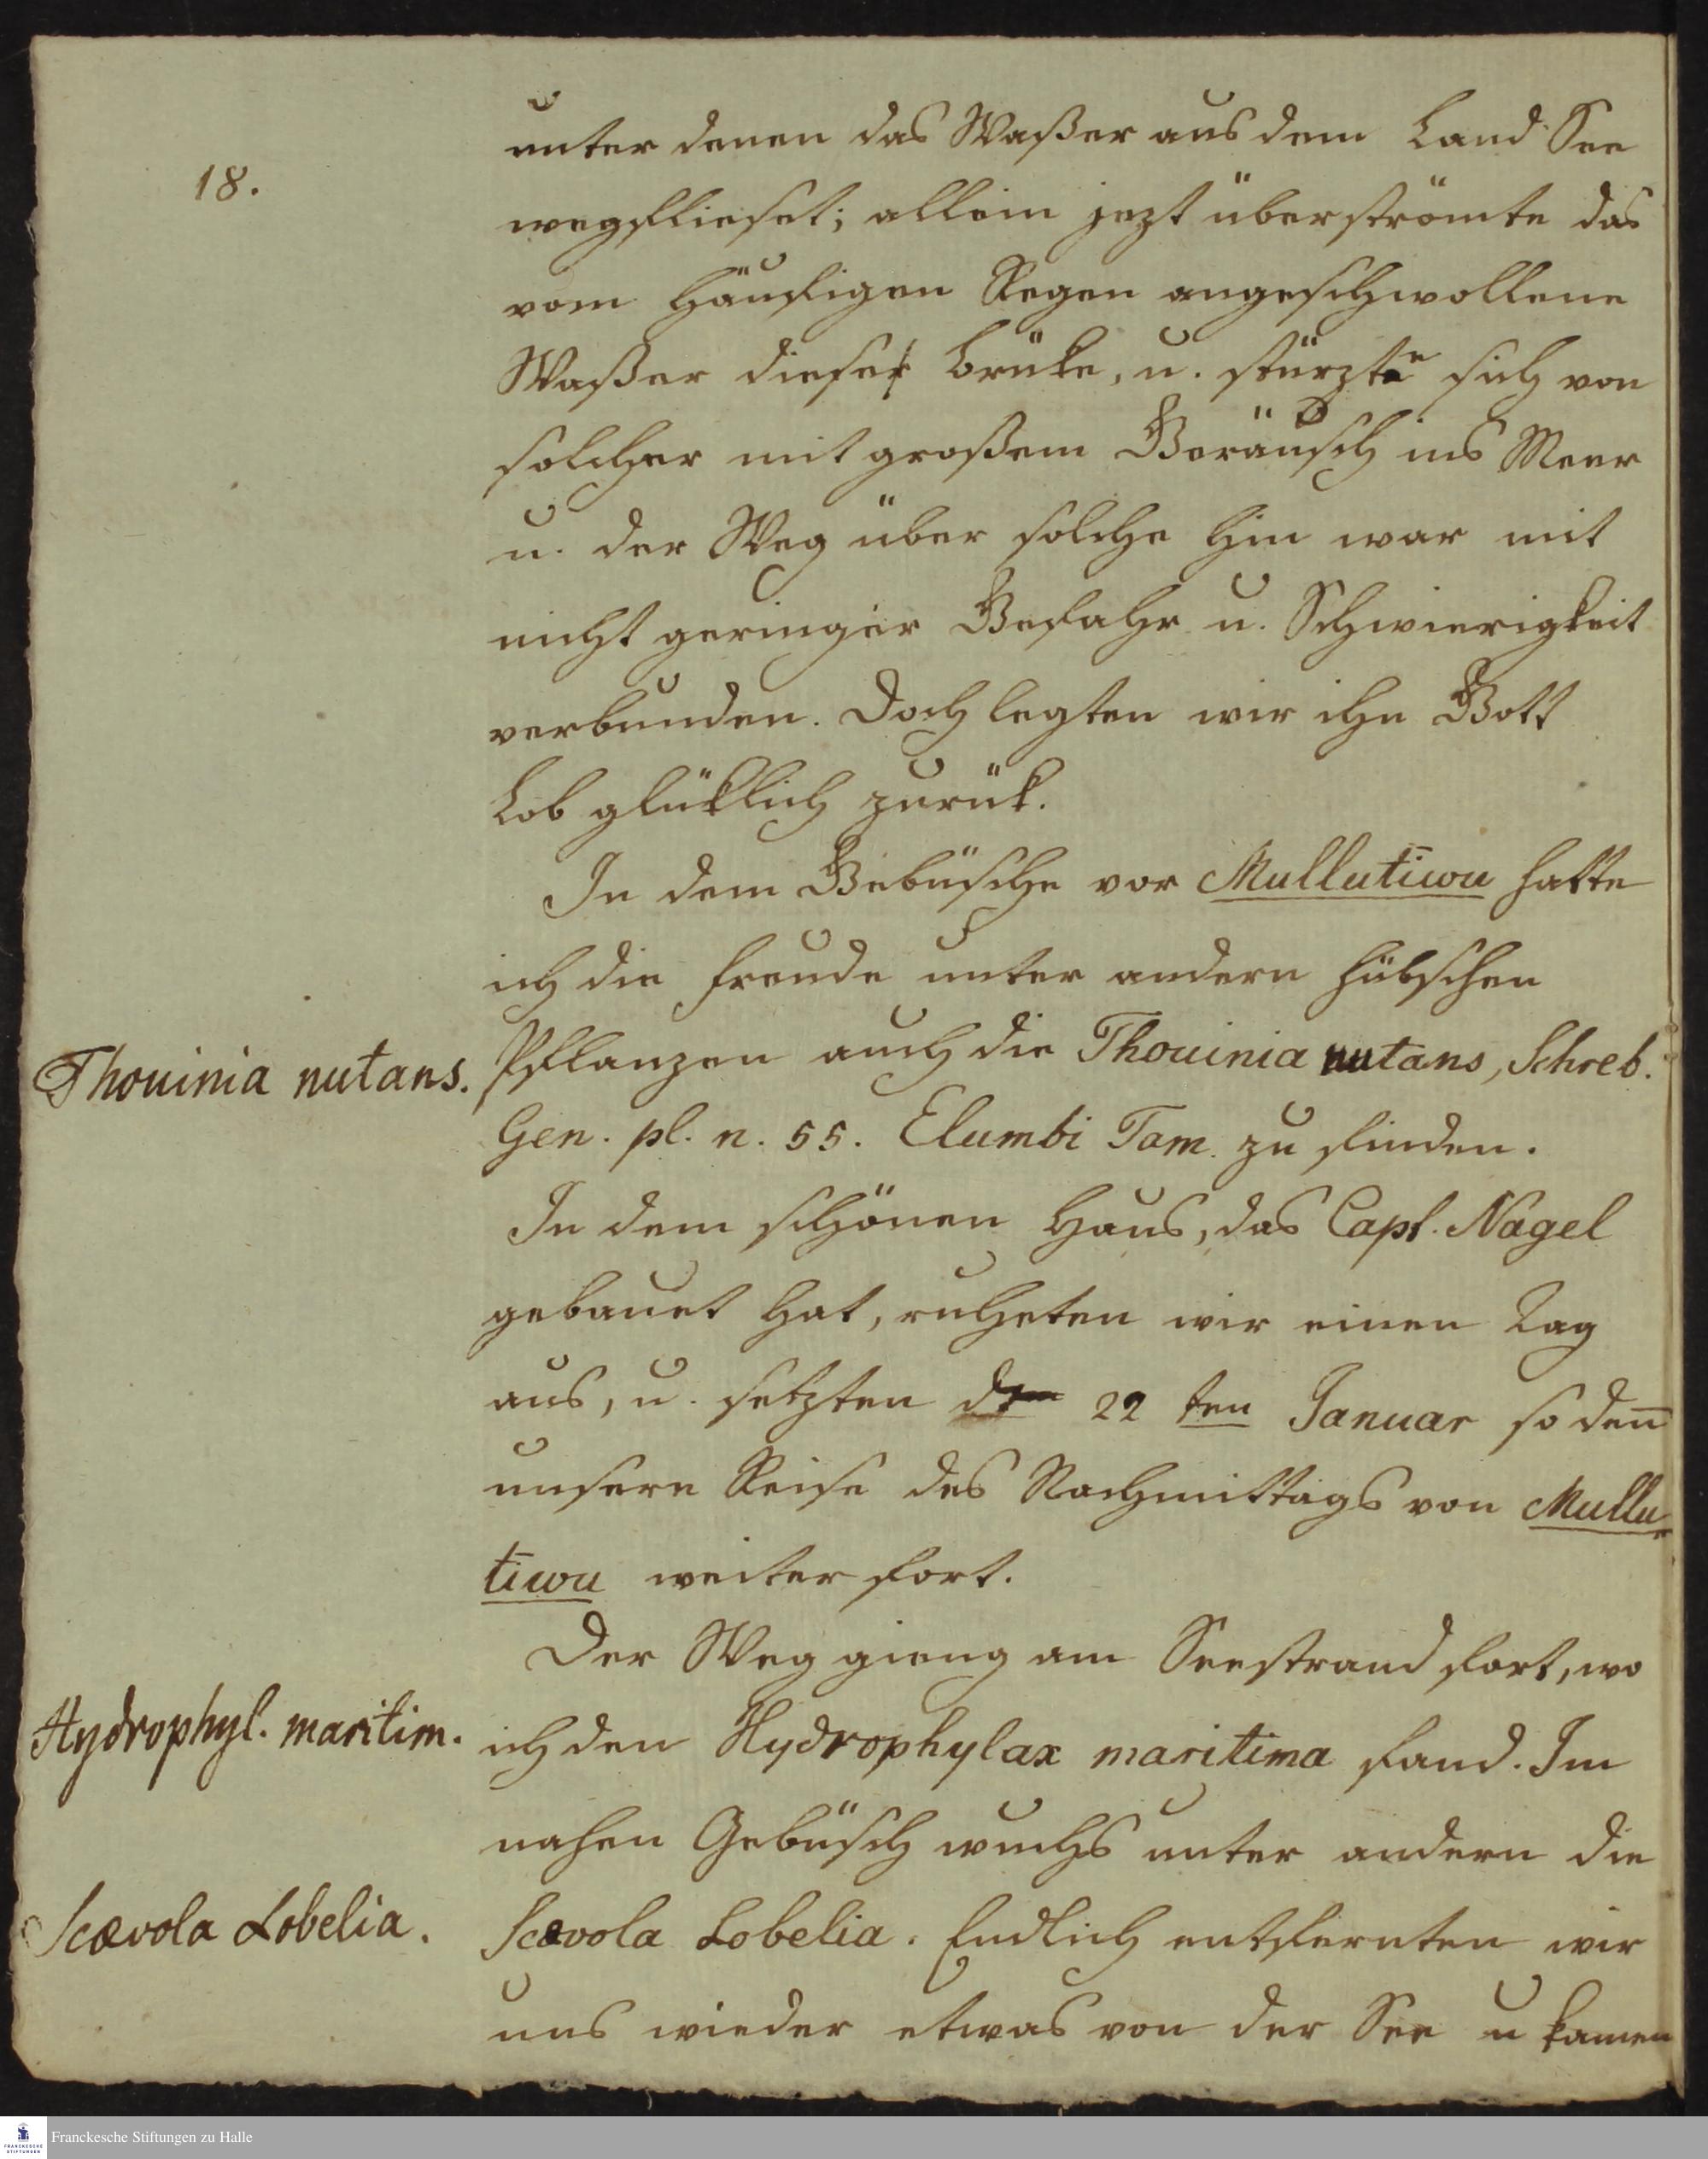 18.
unter denen das Waßer aus dem Land See
wegfließet; allein jezt überströmte das
vom häufigen Regen angeschwollene
Waßer diese Brüke, u. stürzte sich von
solcher mit großem Geräusch ins Meer
u. der Weg über solche hin war mit
nicht geringer Gefahr u. Schwierigkeit
verbunden. Doch legten wir ihn Gott
Lob glüklich zurük.
In dem Gebüsche vor Mullutiwu hatte
ich die Freude unter andern hübschen
Thouinia nutans.
Pflanzen auch die Thouinia nutans, Schreb.
Gen. pl. n. 55. Elumbi Tam. zu finden.
In dem schönen Haus, das Capt. Nagel
gebauet hat, ruheten wir einen Tag
aus, u. setzten den 22 ten Januar so den̄
unsere Reise des Nachmittags von Mullu-
tiwu weiter fort.
Der Weg gieng am Seestrand fort, wo
Hydrophyl. maritim.
ich den Hydrophylax maritima fand. Im
nahen Gebüsch wuchs unter andern die
Scævola Lobelia.
Scævola Lobelia. Endlich entfernten wir
uns wieder etwas von der See u kamen
FRANCKESCHE
STIFTUNGEN
Franckesche Stiftungen zu Halle